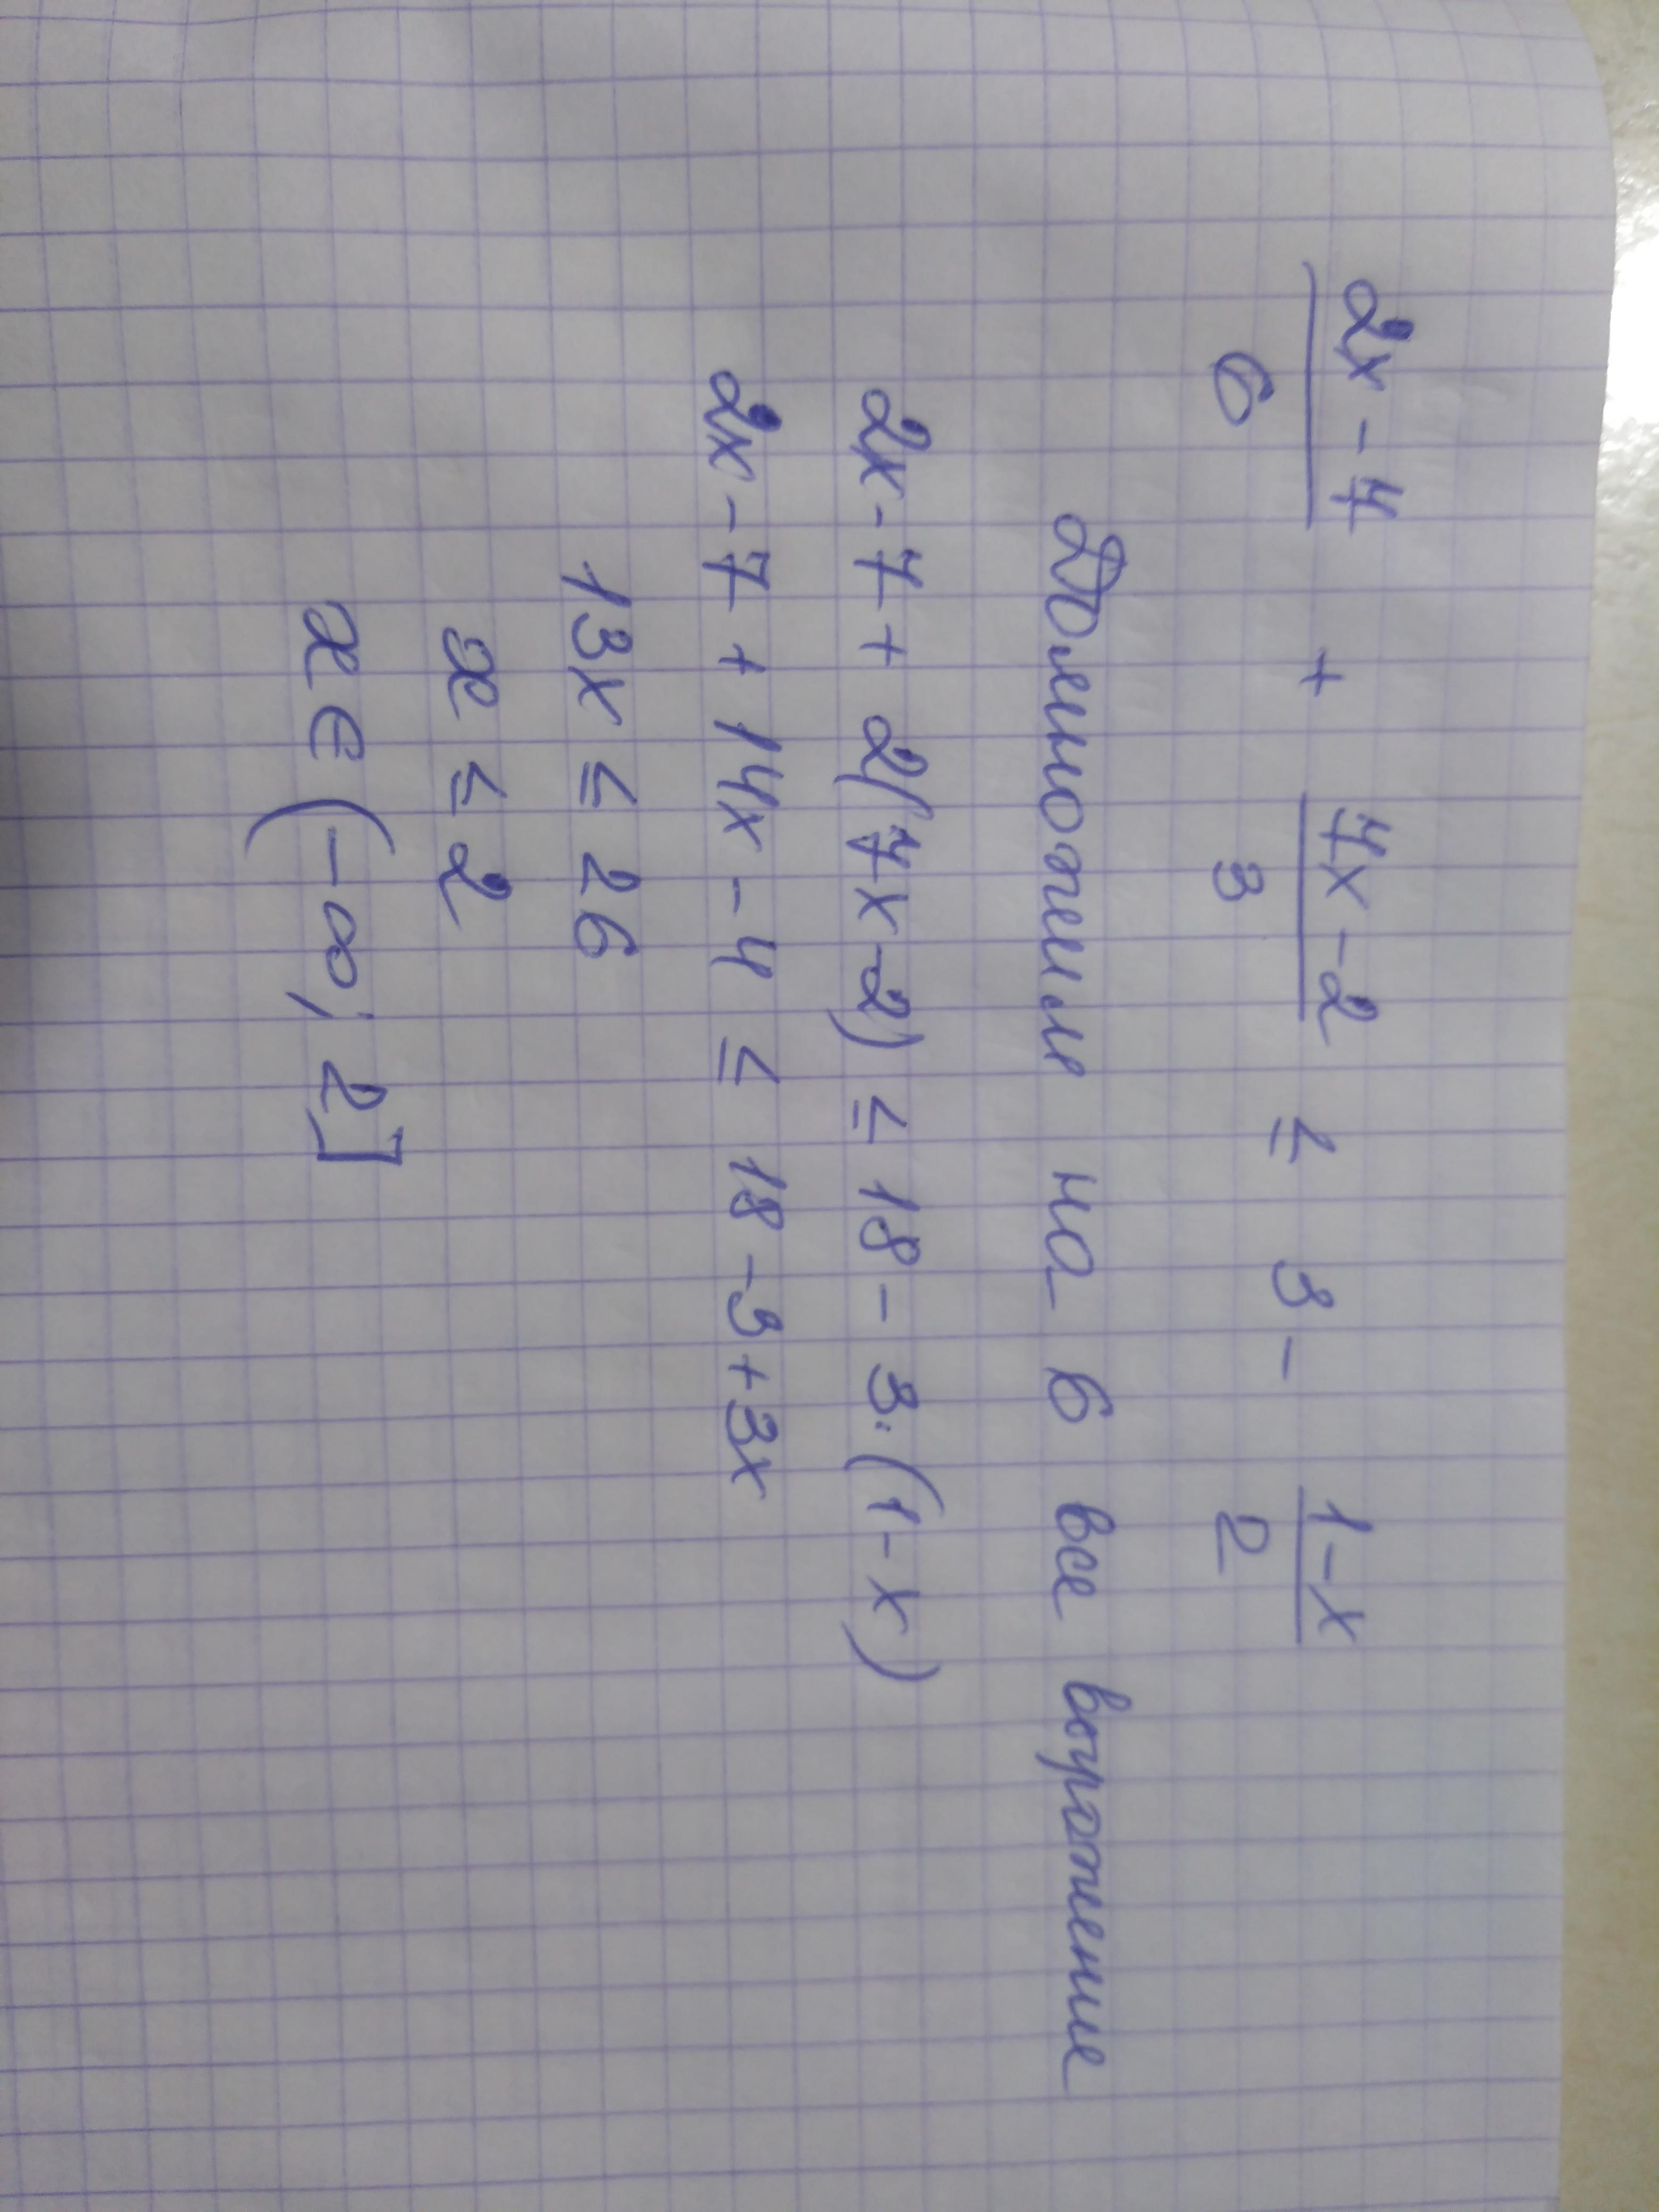 2x-7/6 + 7x-2/3 ≤ 3 - 1-x/2
Домножим на 6 все выражение
2x-7+ 2(7x-2) ≤ 18 - 3·(1-x)
2x-7 + 14x-4 ≤ 18-3+3x
13x ≤ 26
x ≤ 2
x ∈ (-∞; 2]